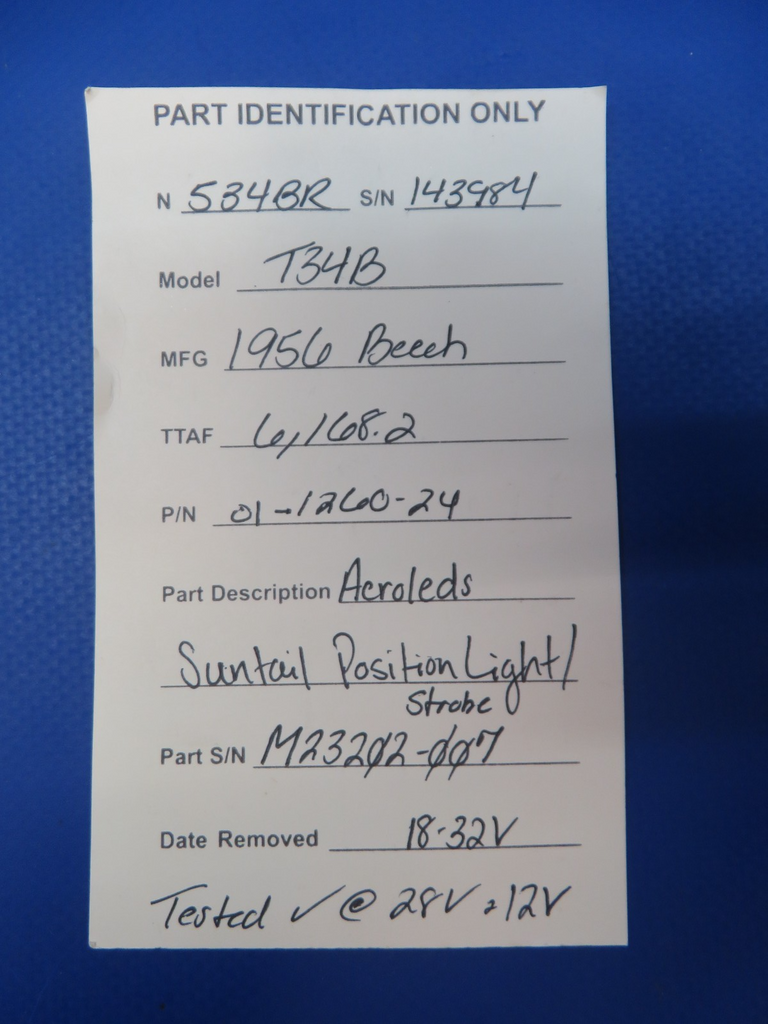 PART IDENTIFICATION ONLY
N 534BR S/N 143984
Model T34B
MFG 1956 Beech
TTAF 6,168.2
P/N 01-1260-24
Part Description Aeroleds
Suntail Position Light/
Strobe
Part S/N M23202-007
Date Removed 18-32V
Tested ✓ @ 28V 12V